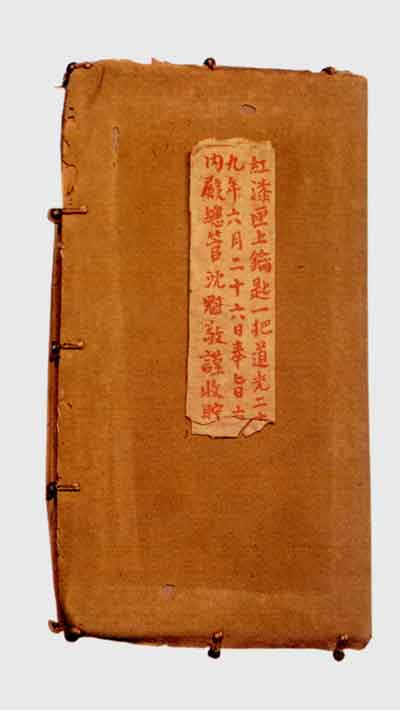 紅漆匣上鑰匙一把道光二十
九年六月二十六日奉旨七
內殿總管沈魁敬謹收貯